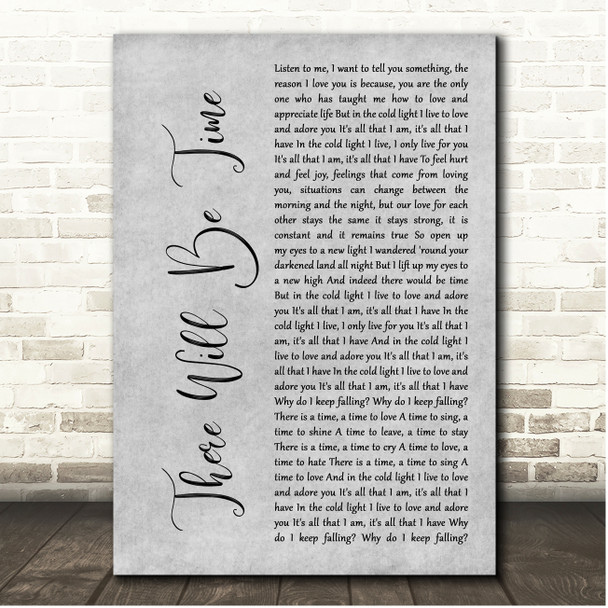 There Will Be Time
Listen to me, I want to tell you something, the
reason I love you is because, you are the only
one who has taught me how to love and
appreciate life But in the cold light I live to love
and adore you It's all that I am, it's all that I
have In the cold light I live, I only live for you
It's all that I am, it's all that I have To feel hurt
and feel joy, feelings that come from loving
you, situations can change between the
morning and the night, but our love for each
other stays the same it stays strong, it is
constant and it remains true So open up
my eyes to a new light I wandered 'round your
darkened land all night But I lift up my eyes to
a new high And indeed there would be time
But in the cold light I live to love and adore
you It's all that I am, it's all that I have In the
cold light I live, I only live for you It's all that I
am, it's all that I have And in the cold light I
live to love and adore you It's all that I am, it's
all that I have In the cold light I live to love and
adore you It's all that I am, it's all that I have
Why do I keep falling? Why do I keep falling?
There is a time, a time to love A time to sing, a
time to shine A time to leave, a time to stay
There is a time, a time to cry A time to love, a
time to hate There is a time, a time to sing A
time to love And in the cold light I live to love
and adore you It's all that I am, it's all that I
have In the cold light I live to love and adore
you It's all that I am, it's all that I have Why
do I keep falling? Why do I keep falling?